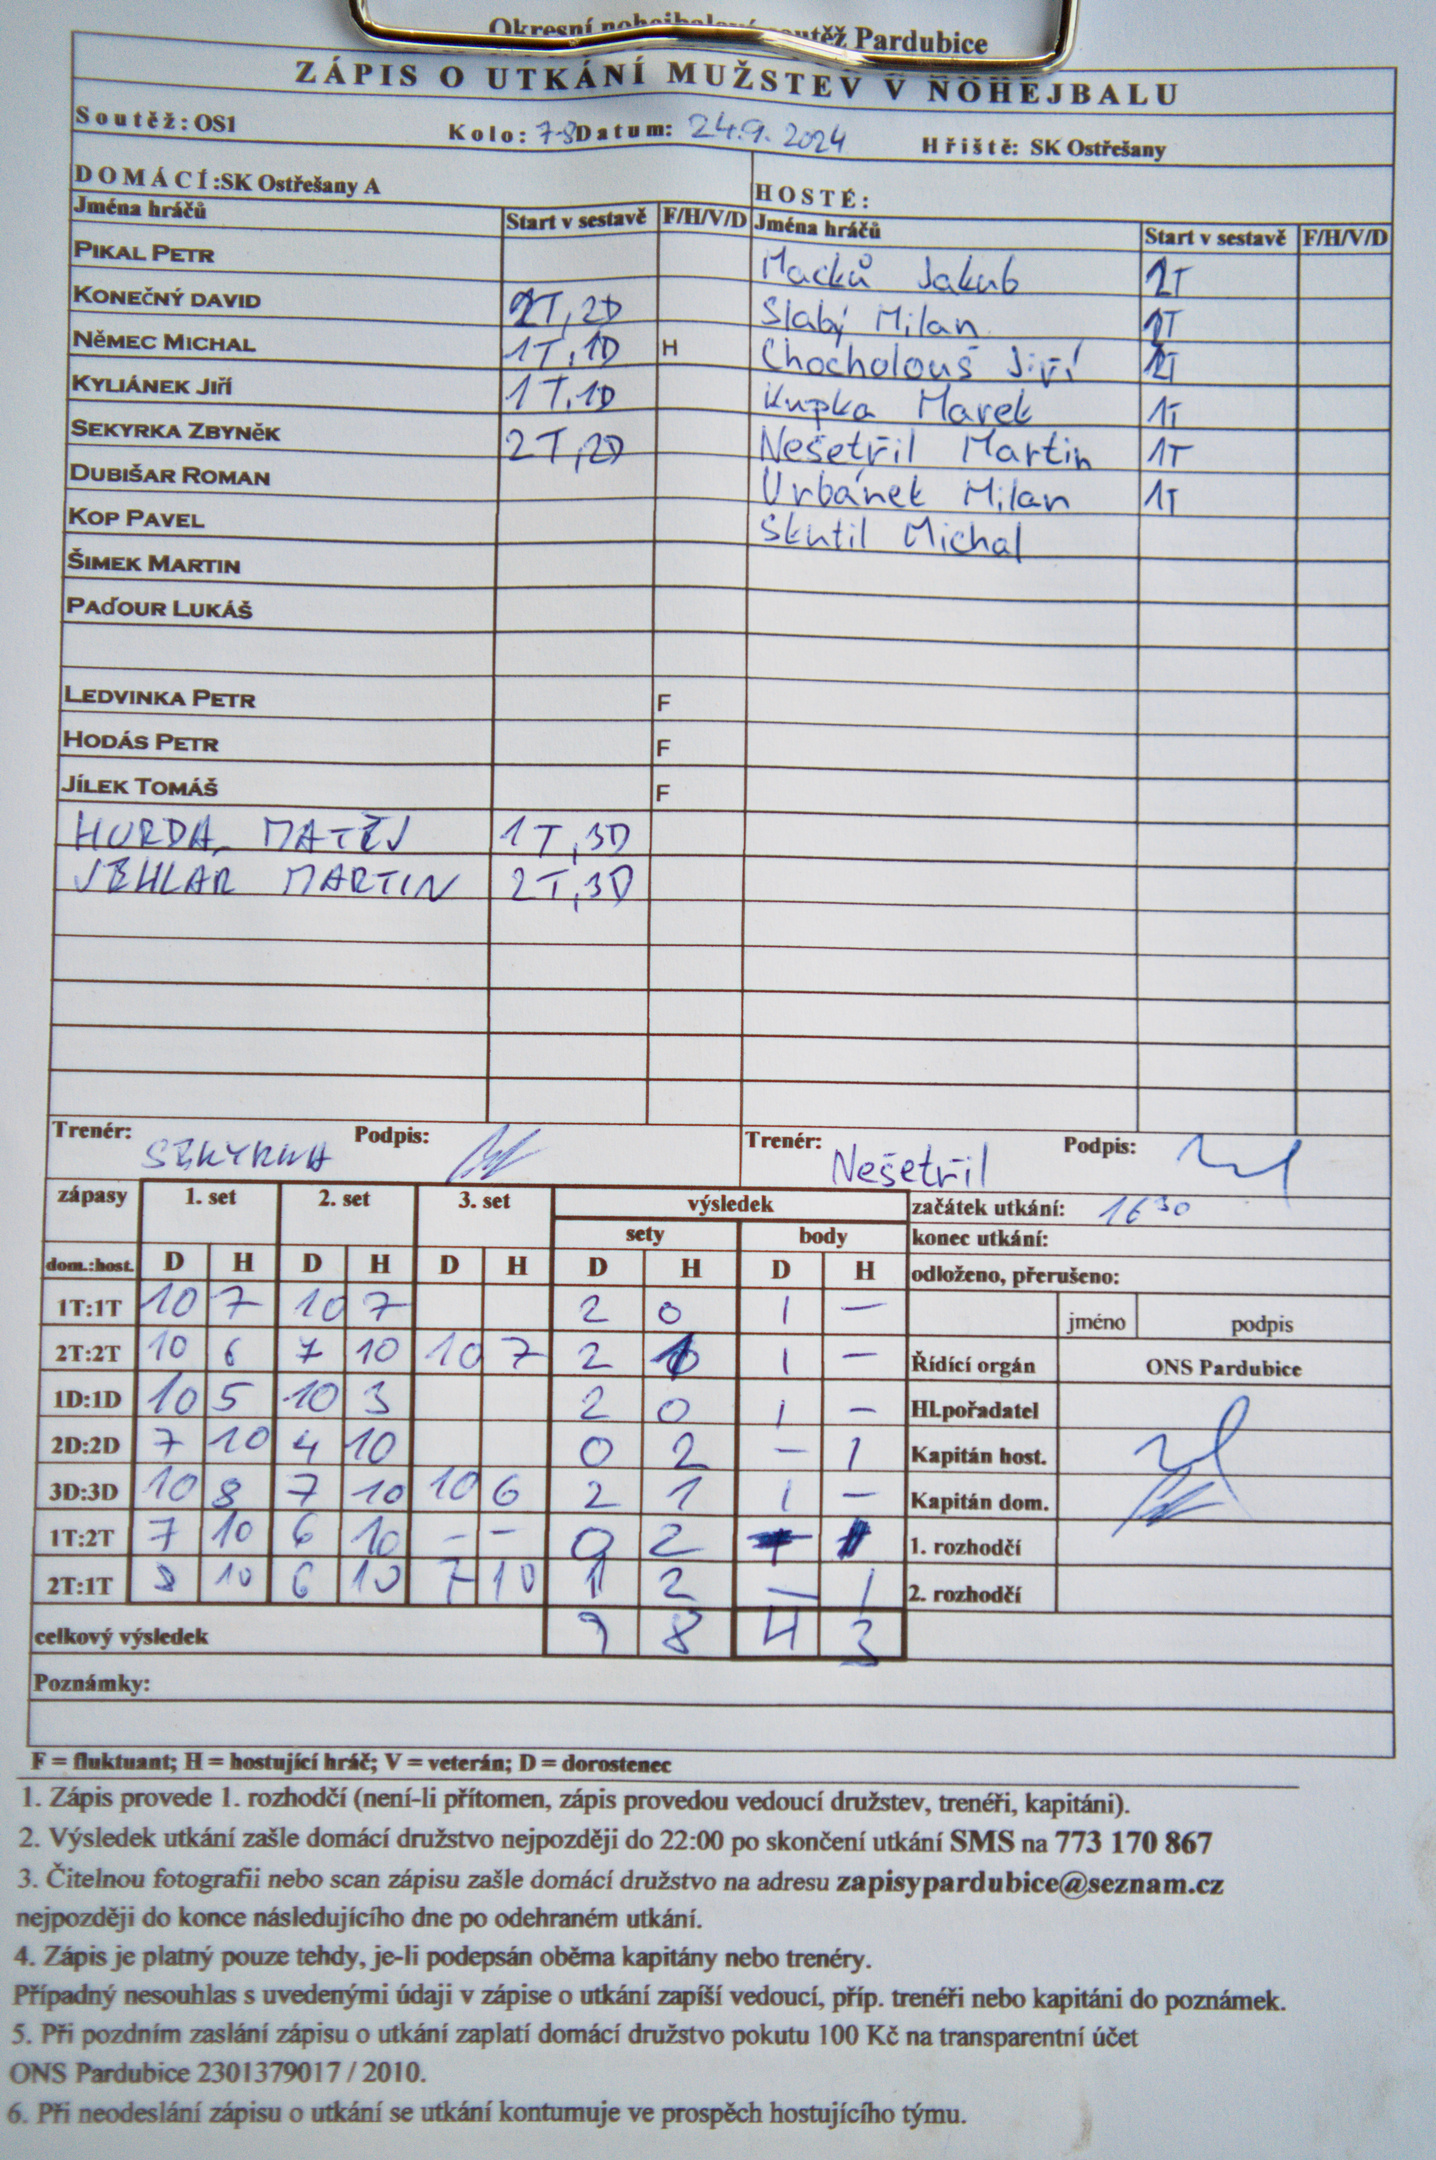 Okresní nohejbalová soutěž Pardubice
ZÁPIS O UTKÁNÍ MUŽSTEV V NOHEJBALU
Soutěž: OS1 Kolo: 7-8 Datum: 24.9. 2024 Hřiště: SK Ostřešany
DOMÁCÍ: SK Ostřešany A HOSTÉ:
Jména hráčů Start v sestavě F/H/V/D Jména hráčů Start v sestavě F/H/V/D
PIKAL PETR Macků Jakub 2T
KONEČNÝ DAVID 2T, 2D Slabý Milan 2T
NĚMEC MICHAL 1T, 1D H Chocholouš Jiří 2T
KYLIÁNEK JIŘÍ 1T, 1D Kupka Marek 1T
SEKYRKA ZBYNĚK 2T, 2D Nešetřil Martin 1T
DUBIŠAR ROMAN Urbánek Milan 1T
KOP PAVEL Skutil Michal
ŠIMEK MARTIN
PAĎOUR LUKÁŠ
LEDVINKA PETR F
HODÁS PETR F
JÍLEK TOMÁŠ F
HURDA MATĚJ 1T, 3D
JEHLÁŘ MARTIN 2T, 3D
Trenér: SEKYRKA Podpis: Trenér: Nešetřil Podpis:
zápasy 1. set 2. set 3. set výsledek začátek utkání: 16 30
sety body konec utkání:
dom.:host. D H D H D H D H D H odloženo, přerušeno:
1T:1T 10 7 10 7 2 0 1 – jméno podpis
2T:2T 10 6 7 10 10 7 2 1 1 – Řídící orgán ONS Pardubice
1D:1D 10 5 10 3 2 0 1 – Hl.pořadatel
2D:2D 7 10 4 10 0 2 – 1 Kapitán host.
3D:3D 10 8 7 10 10 6 2 1 1 – Kapitán dom.
1T:2T 7 10 6 10 – – 0 2 – 1 1. rozhodčí
2T:1T 8 10 6 10 7 10 1 2 – 1 2. rozhodčí
celkový výsledek 9 8 4 3
Poznámky:
F = fluktuant; H = hostující hráč; V = veterán; D = dorostenec
1. Zápis provede 1. rozhodčí (není-li přítomen, zápis provedou vedoucí družstev, trenéři, kapitáni).
2. Výsledek utkání zašle domácí družstvo nejpozději do 22:00 po skončení utkání SMS na 773 170 867
3. Čitelnou fotografii nebo scan zápisu zašle domácí družstvo na adresu zapisypardubice@seznam.cz
nejpozději do konce následujícího dne po odehraném utkání.
4. Zápis je platný pouze tehdy, je-li podepsán oběma kapitány nebo trenéry.
Případný nesouhlas s uvedenými údaji v zápise o utkání zapíší vedoucí, příp. trenéři nebo kapitáni do poznámek.
5. Při pozdním zaslání zápisu o utkání zaplatí domácí družstvo pokutu 100 Kč na transparentní účet
ONS Pardubice 2301379017 / 2010.
6. Při neodeslání zápisu o utkání se utkání kontumuje ve prospěch hostujícího týmu.